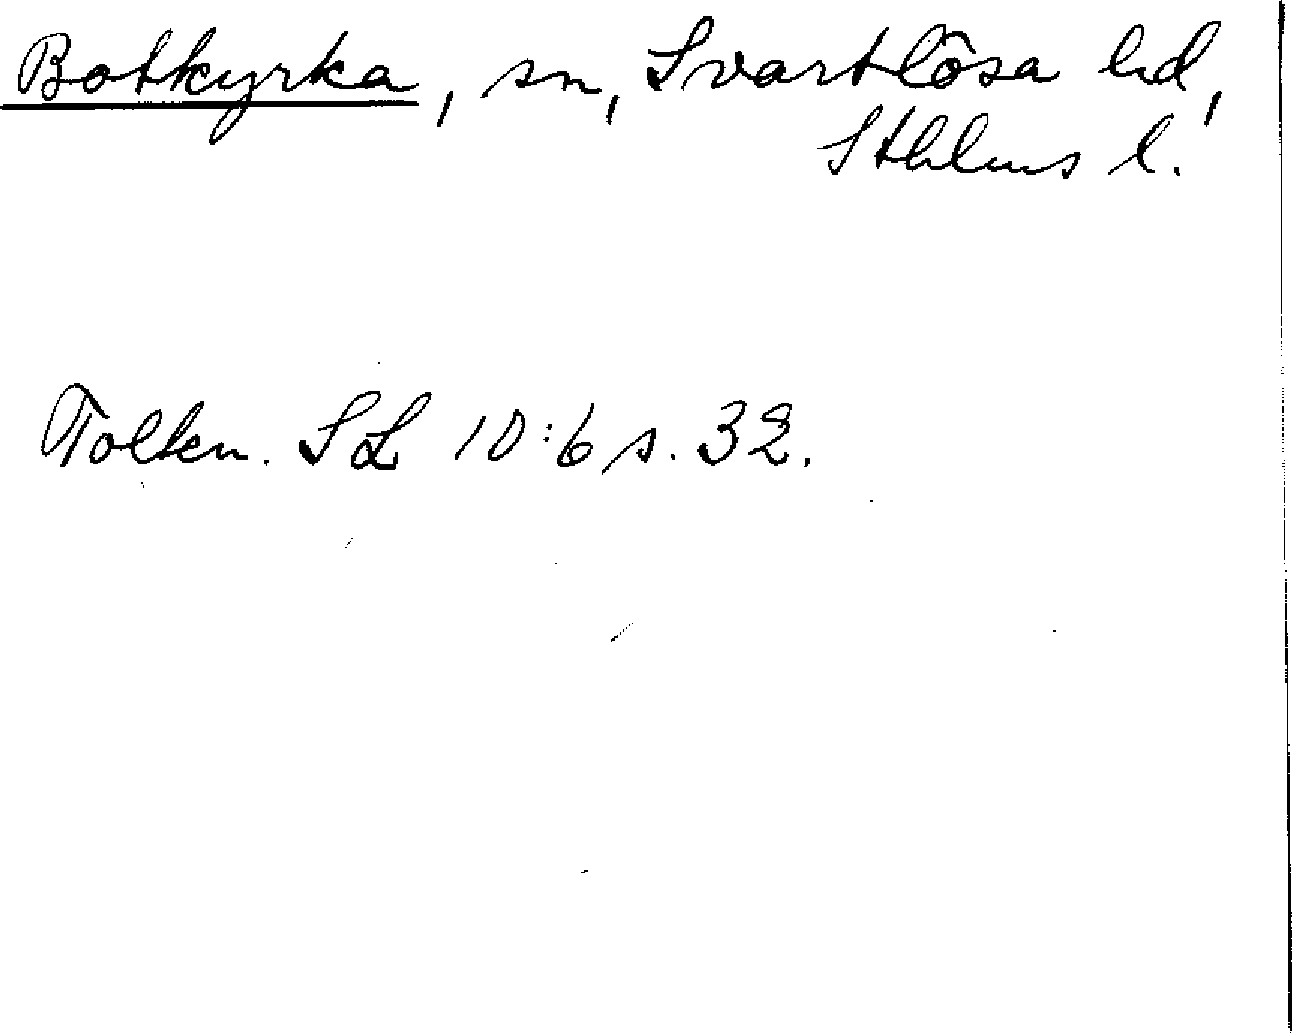 Botkyrka, sn, Svartlösa hd,
Sthlms l.
Tolkn. SL 10:6 s. 32.